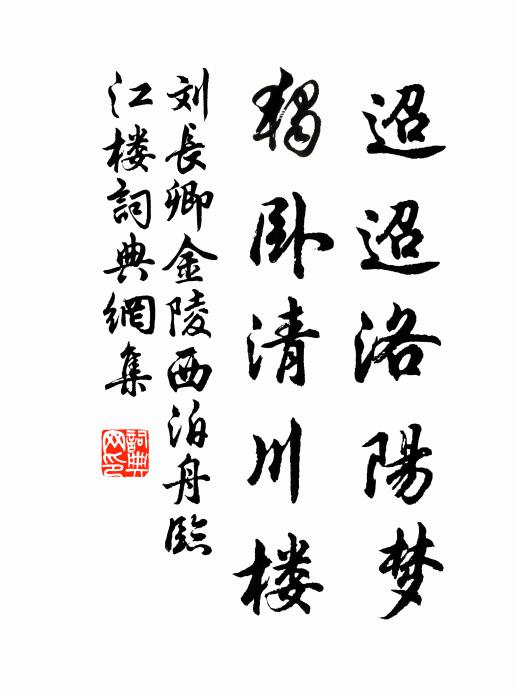 迢迢洛陽梦
獨卧清川楼
刘長卿金陵西泊舟臨
江楼詞典網集
詞典
网印